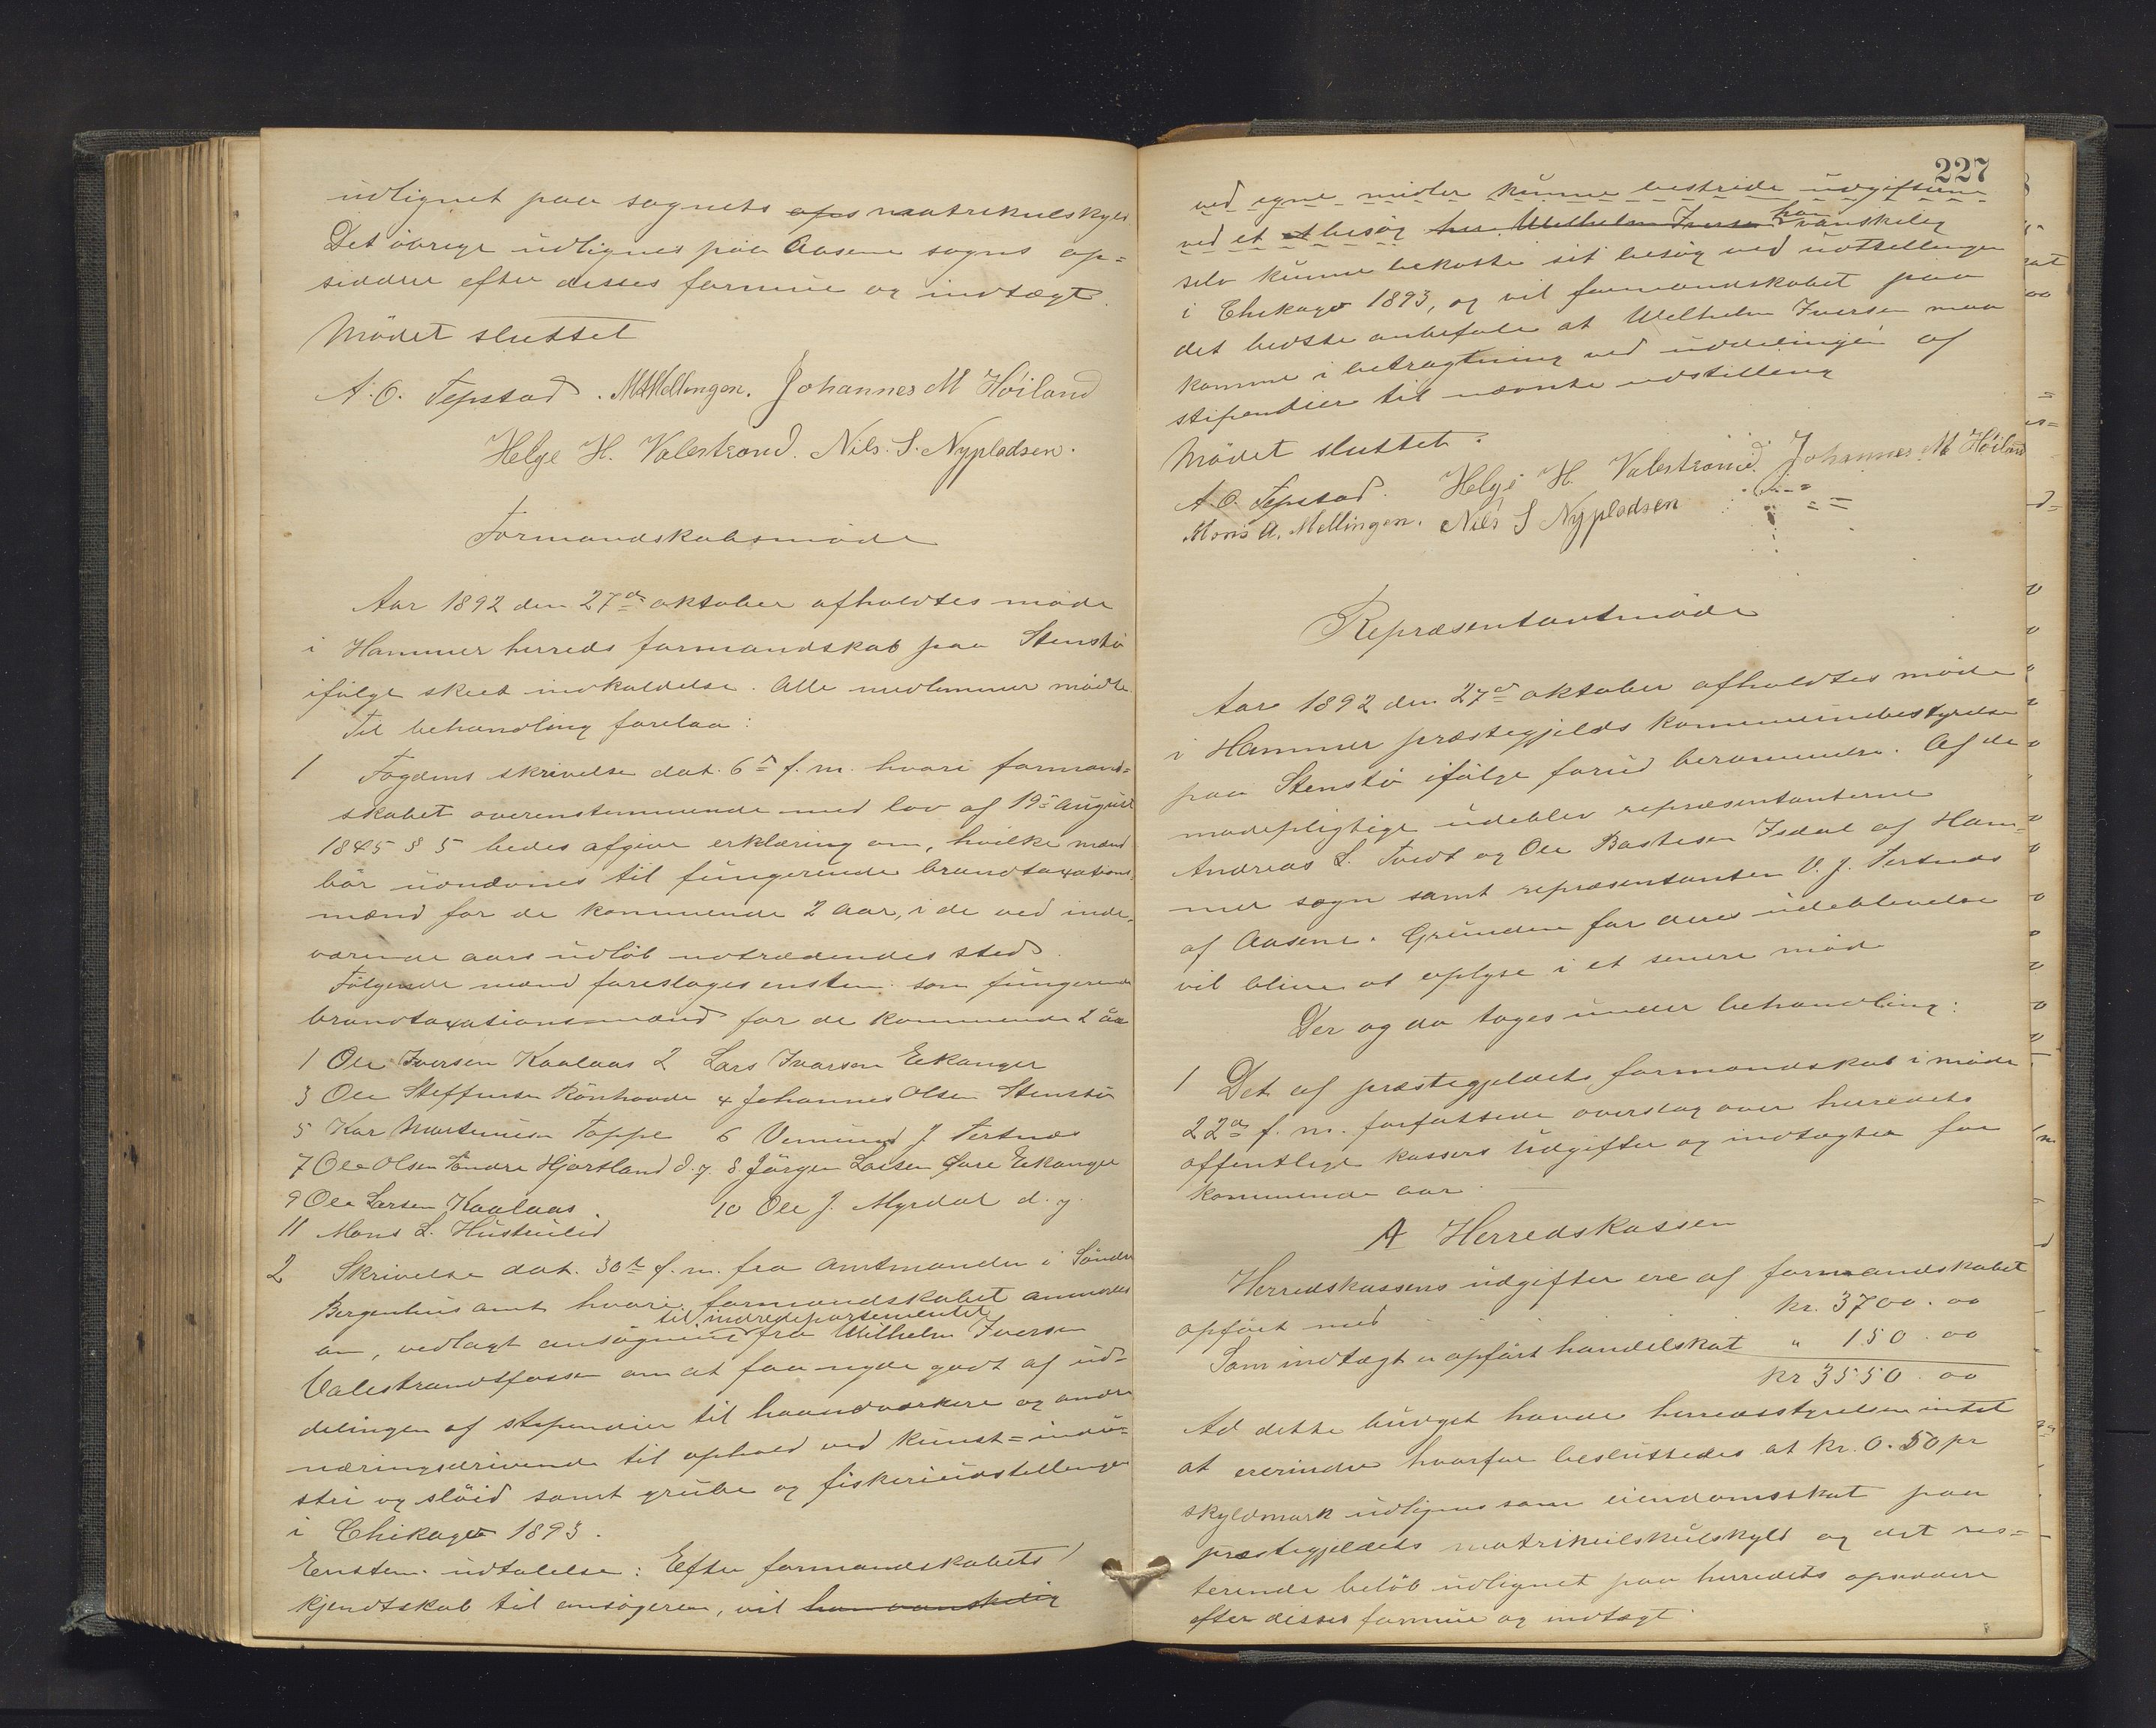 udlignet paa sognets ops matrikulskyld
Det øvrige udlignes paa Aasene sogns op=
siddere efter disses formue og indtægt.
Mödet sluttet
A. O. Tepstad. M A Mellingen. Johannes M Höiland
Helge H. Valestrand. Nils. S. Nypladsen.
Formandskabsmöde
Aar 1892 den 27de oktober afholdtes möde
i Hammer herreds formandskab paa Stenstö
ifölge skeet indkaldelse. Alle medlemmer mödte.
Til behandling forelaa:
1 Fogdens skrivelse dat. 6te f. m. hvori formand=
skabet overenstemmende med lov af 19de august
1845 § 5 bedes afgive erklæring om, hvilke mænd
bör uondvnes til fungerende brandtaxations=
mænd for de kommende 2 aar, i de ved inde=
værende aars udlöb udtrædendes sted.
Fölgende mænd foreslages enstem. som fungerende
brandtaxationsmænd for de kommende 2 aar
1 Ole Iversen Kaalaas 2 Lars Ivarsen Eekanger
3 Ole Steffensen Rönhovde 4 Johannes Olsen Stenstö
5 Kar Martinusen Toppe 6 Vemund J Tertnæs
7 Ole Olsen Söndre Hjortland d. y. 8 Jörgen Larsen Övre Eekanger
9 Ole Larsen Kaalaas. 10 Ole J. Myrdal d. y.
11 Mons L. Hustulid
2 Skrivelse dat. 30te f. m. fra amtmanden i Söndre
Bergenhus amt hvori formandskabet anmodes
til indredepartementet
om, vedlagt ansögning fra Wilhelm Iversen
Valestrandsfossen om at faa nyde godt af ud=
delingen af stipendier til haandværkere og andre
næringsdrivende til ophold ved kunst= indu=
stri og slöid samt grube og fiskeriudstillingen
i Chikago 1893.
Enstem. udtalelse: Efter formandskabets
kjendtskab til ansögeren, vil han vanskelig
227
ved egne midler kunne bestride udgifterne
han
ved et et besög herr Wilhelm Iversen vanskelig
selv kunne bekoste sit besög ved udstillingen
i Chikago 1893, og vil formandskabet paa
det bedste anbefale at Wilhelm Iversen maa
komme i betragtning ved uddelingen af
stipendier til nævnte udstilling
Mödet sluttet.
A. O. Tepstad. Helge H. Valestrand. Johannes M Höiland
Mons A. Mellingen. Nils S Nypladsen
Repræsentantmöde
Aar 1892 den 27de oktober afholdtes möde
i Hammer præstegjelds kommunebestyrelse
paa Stenstö ifölge forud berammelse. Af de
mödepligtige udeblev repræsentanterne
Andreas L. Tvedt og Ole Bastesen Isdal af Ham=
mer sogn samt repræsentanten V. J. Tertnæs
af Aasene. Grunden for deres udeblivelse
vil blive at oplyse i et senere möde
Der og da toges under behandling:
1 Det af præstegjeldets formandskab i möde
22de f. m. forfattede overslag over herredets
offentlige kassers udgifter og indtægter for
kommende aar.
A Herredskassen
Herredskassens udgifter ere af formandskabet
opfört med kr. 3700.00
Som indtægt er opfört handelskat " 150.00
kr 3550.00
Ad dette budget havde herredsstyrelsen intet
at ererindre hvorfor besluttedes at kr. 0.50 pr
skyldmark udlignes som eiendomsskat paa
præstegjeldets matrikulskulskyld og det res=
terende belöb udlignet paa herredets opsiddere
efter disses formue og indtægt.